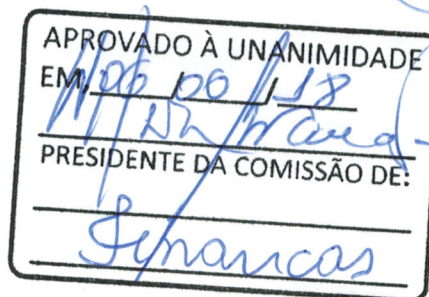 APROVADO À UNANIMIDADE
EM, 06 / 06 / 18
PRESIDENTE DA COMISSÃO DE:
Finanças